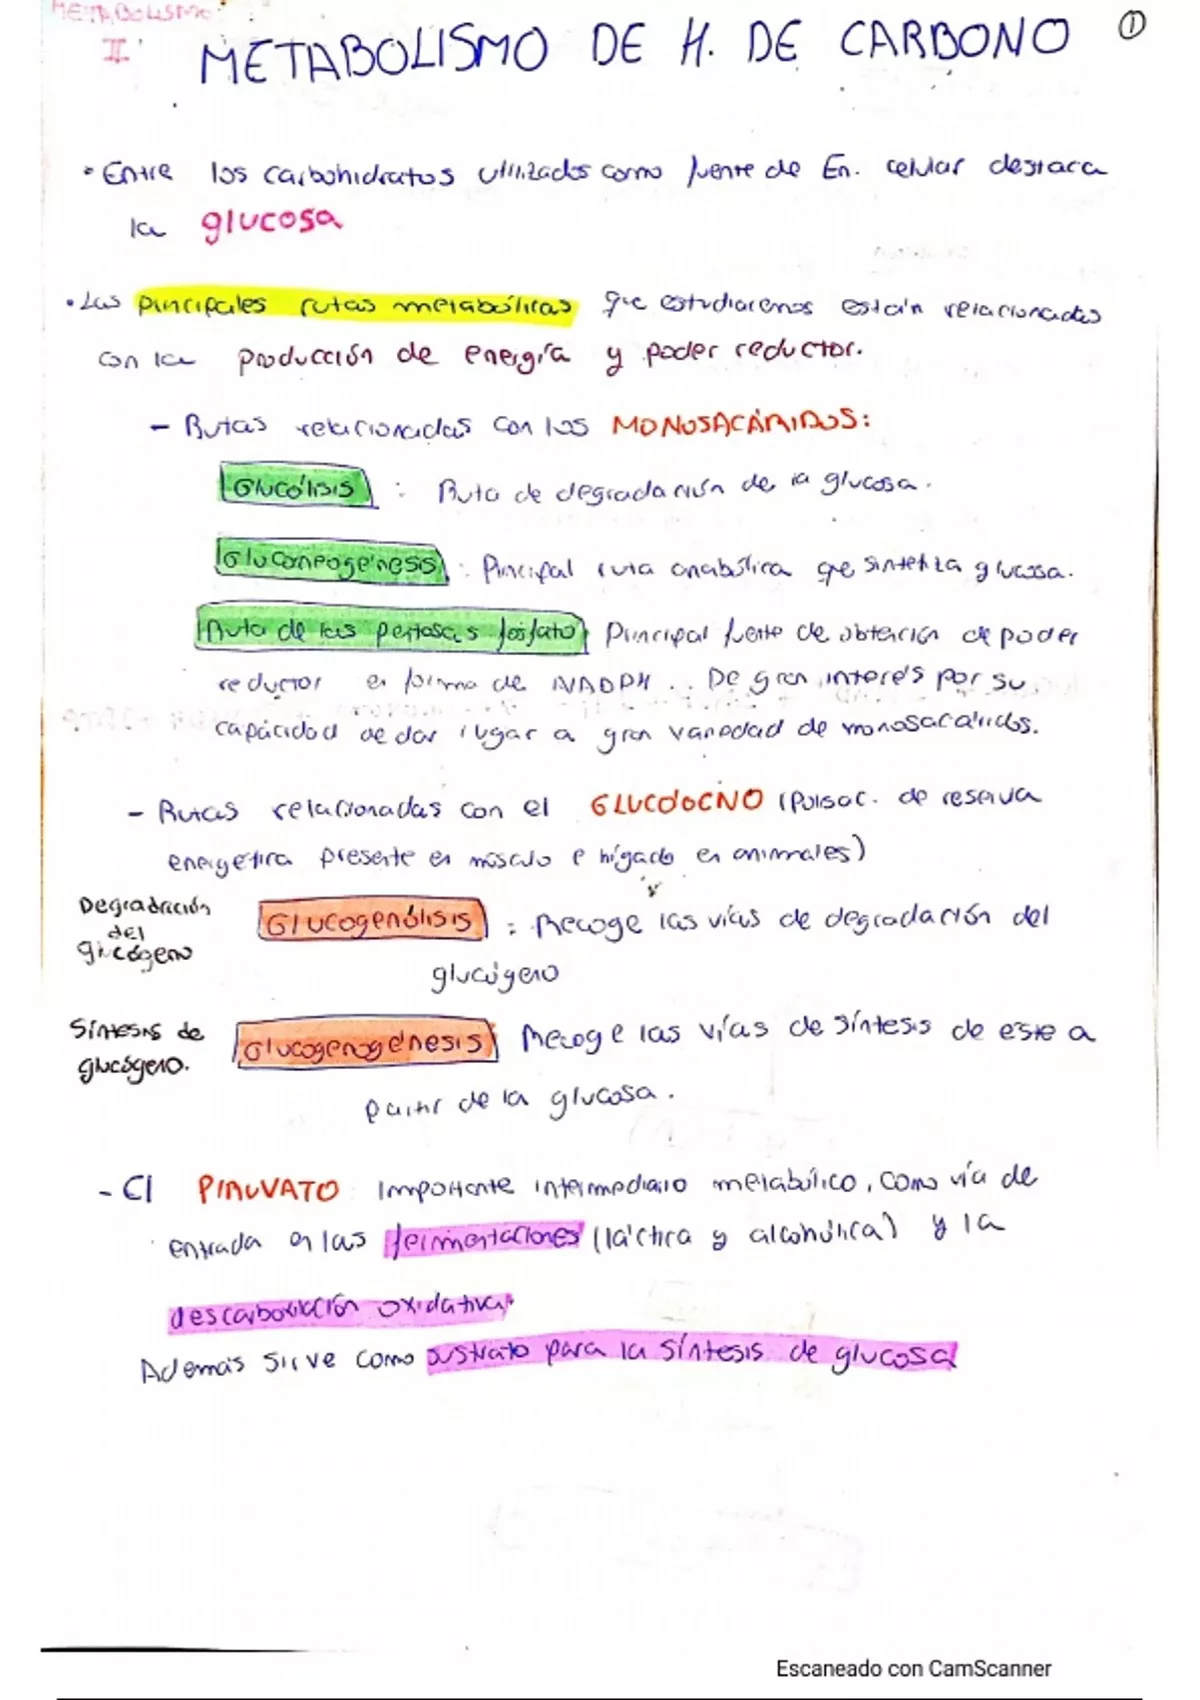 METABOLISMO
II.
METABOLISMO DE H. DE CARBONO ①
• Entre los carbohidratos utilizados como fuente de En. celular destaca
la glucosa
• Las pincipales rutas metabólicas que estudiaremos están relacionadas
con la producción de energía y poder reductor.
- Rutas relacionadas con los MONOSACÁRIDOS:
Glucólisis : Ruta de degradación de la glucosa.
Gluconeogénesis : Pincipal ruta anabólica que sintetiza glucosa.
Ruta de las pentosas fosfato Principal fuente de obtención de poder
reductor en forma de NADPH. De gran interés por su
capacidad de dar lugar a gran variedad de monosacáridos.
- Rutas relacionadas con el GLUCÓGENO (Polisac. de reserva
energética presente en músculo e hígado en animales)
Degradación
del
glucógeno
Glucogenólisis : Recoge las vías de degradación del
glucógeno
Síntesis de
glucógeno.
Glucogenogénesis Recoge las vías de síntesis de este a
partir de la glucosa.
- El PIRUVATO Importante intermediario metabólico, como vía de
entrada en las fermentaciones (láctica y alcohólica) y la
descarboxilación oxidativa.
Además sirve como sustrato para la síntesis de glucosa
Escaneado con CamScanner